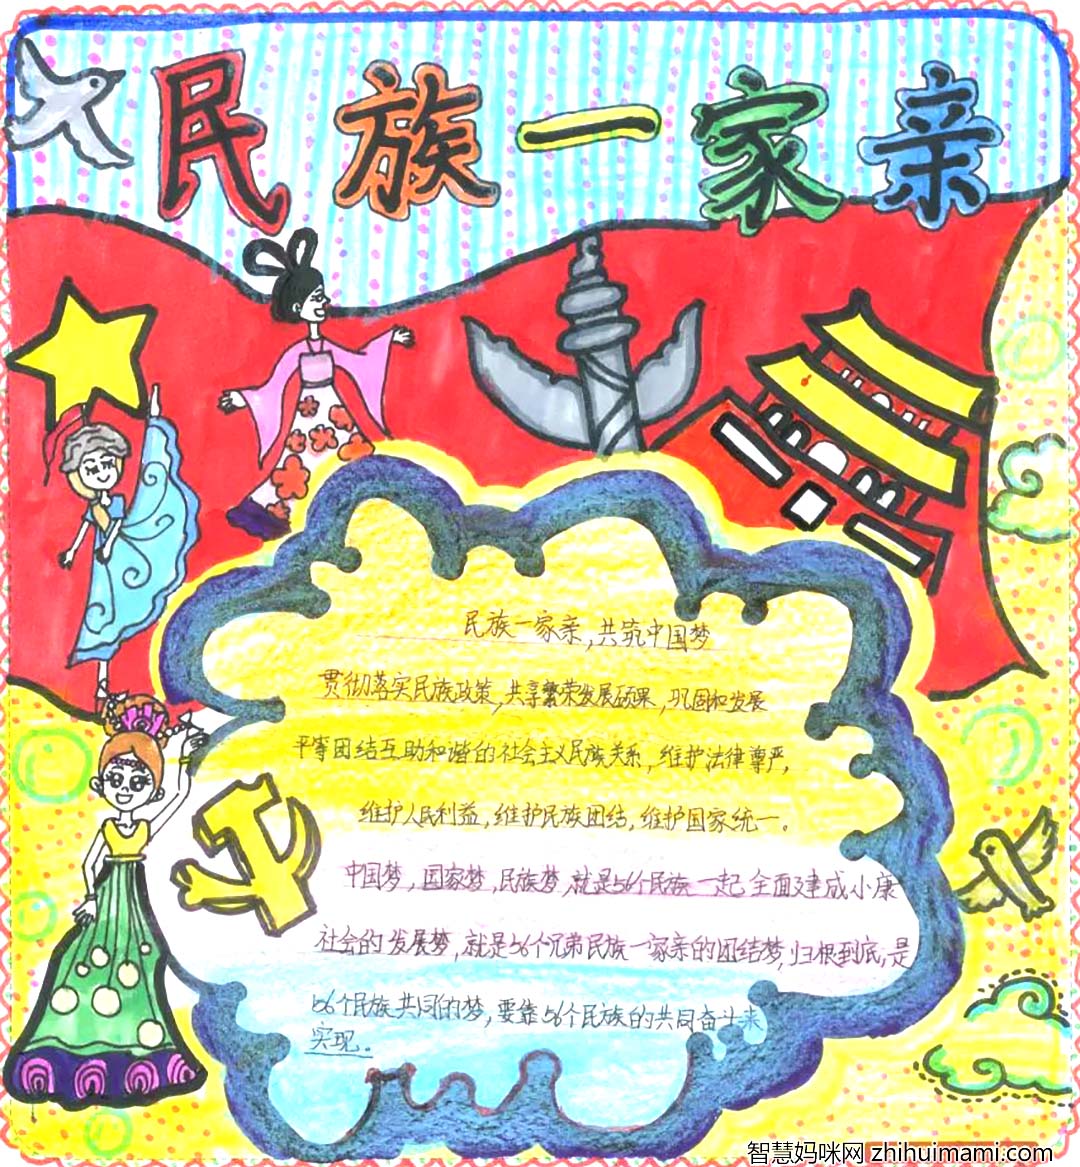 民族一家亲
民族一家亲,共筑中国梦
贯彻落实民族政策,共享繁荣发展硕果,巩固和发展
平等团结互助和谐的社会主义民族关系,维护法律尊严,
维护人民利益,维护民族团结,维护国家统一。
中国梦,国家梦,民族梦,就是56个民族一起全面建成小康
社会的发展梦,就是56个兄弟民族一家亲的团结梦,归根到底,是
56个民族共同的梦,要靠56个民族的共同奋斗来
实现。
智慧妈咪网 zhihuimami.com